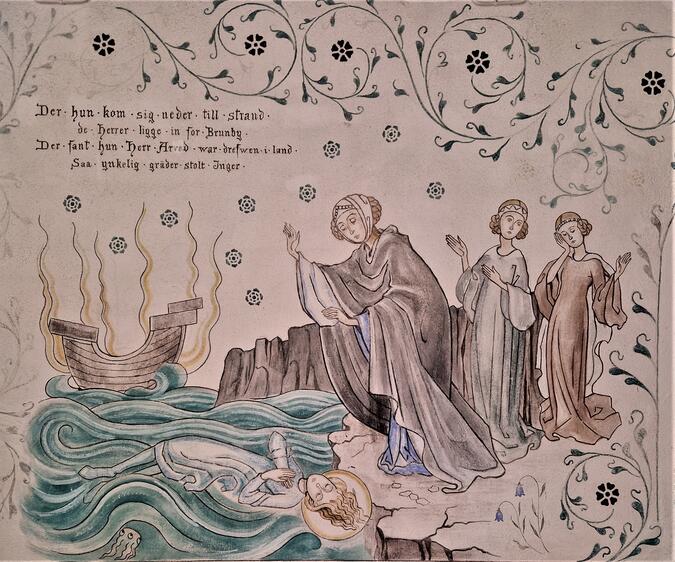 Der · hun · kom · sig · neder · till · strand ·
de · Herrer · ligge · in · for · Brunby ·
Der · fant · hun · Herr · Arved · war · drefwen · i · land ·
Saa · ynkelig · gräder · stolt · Inger ·